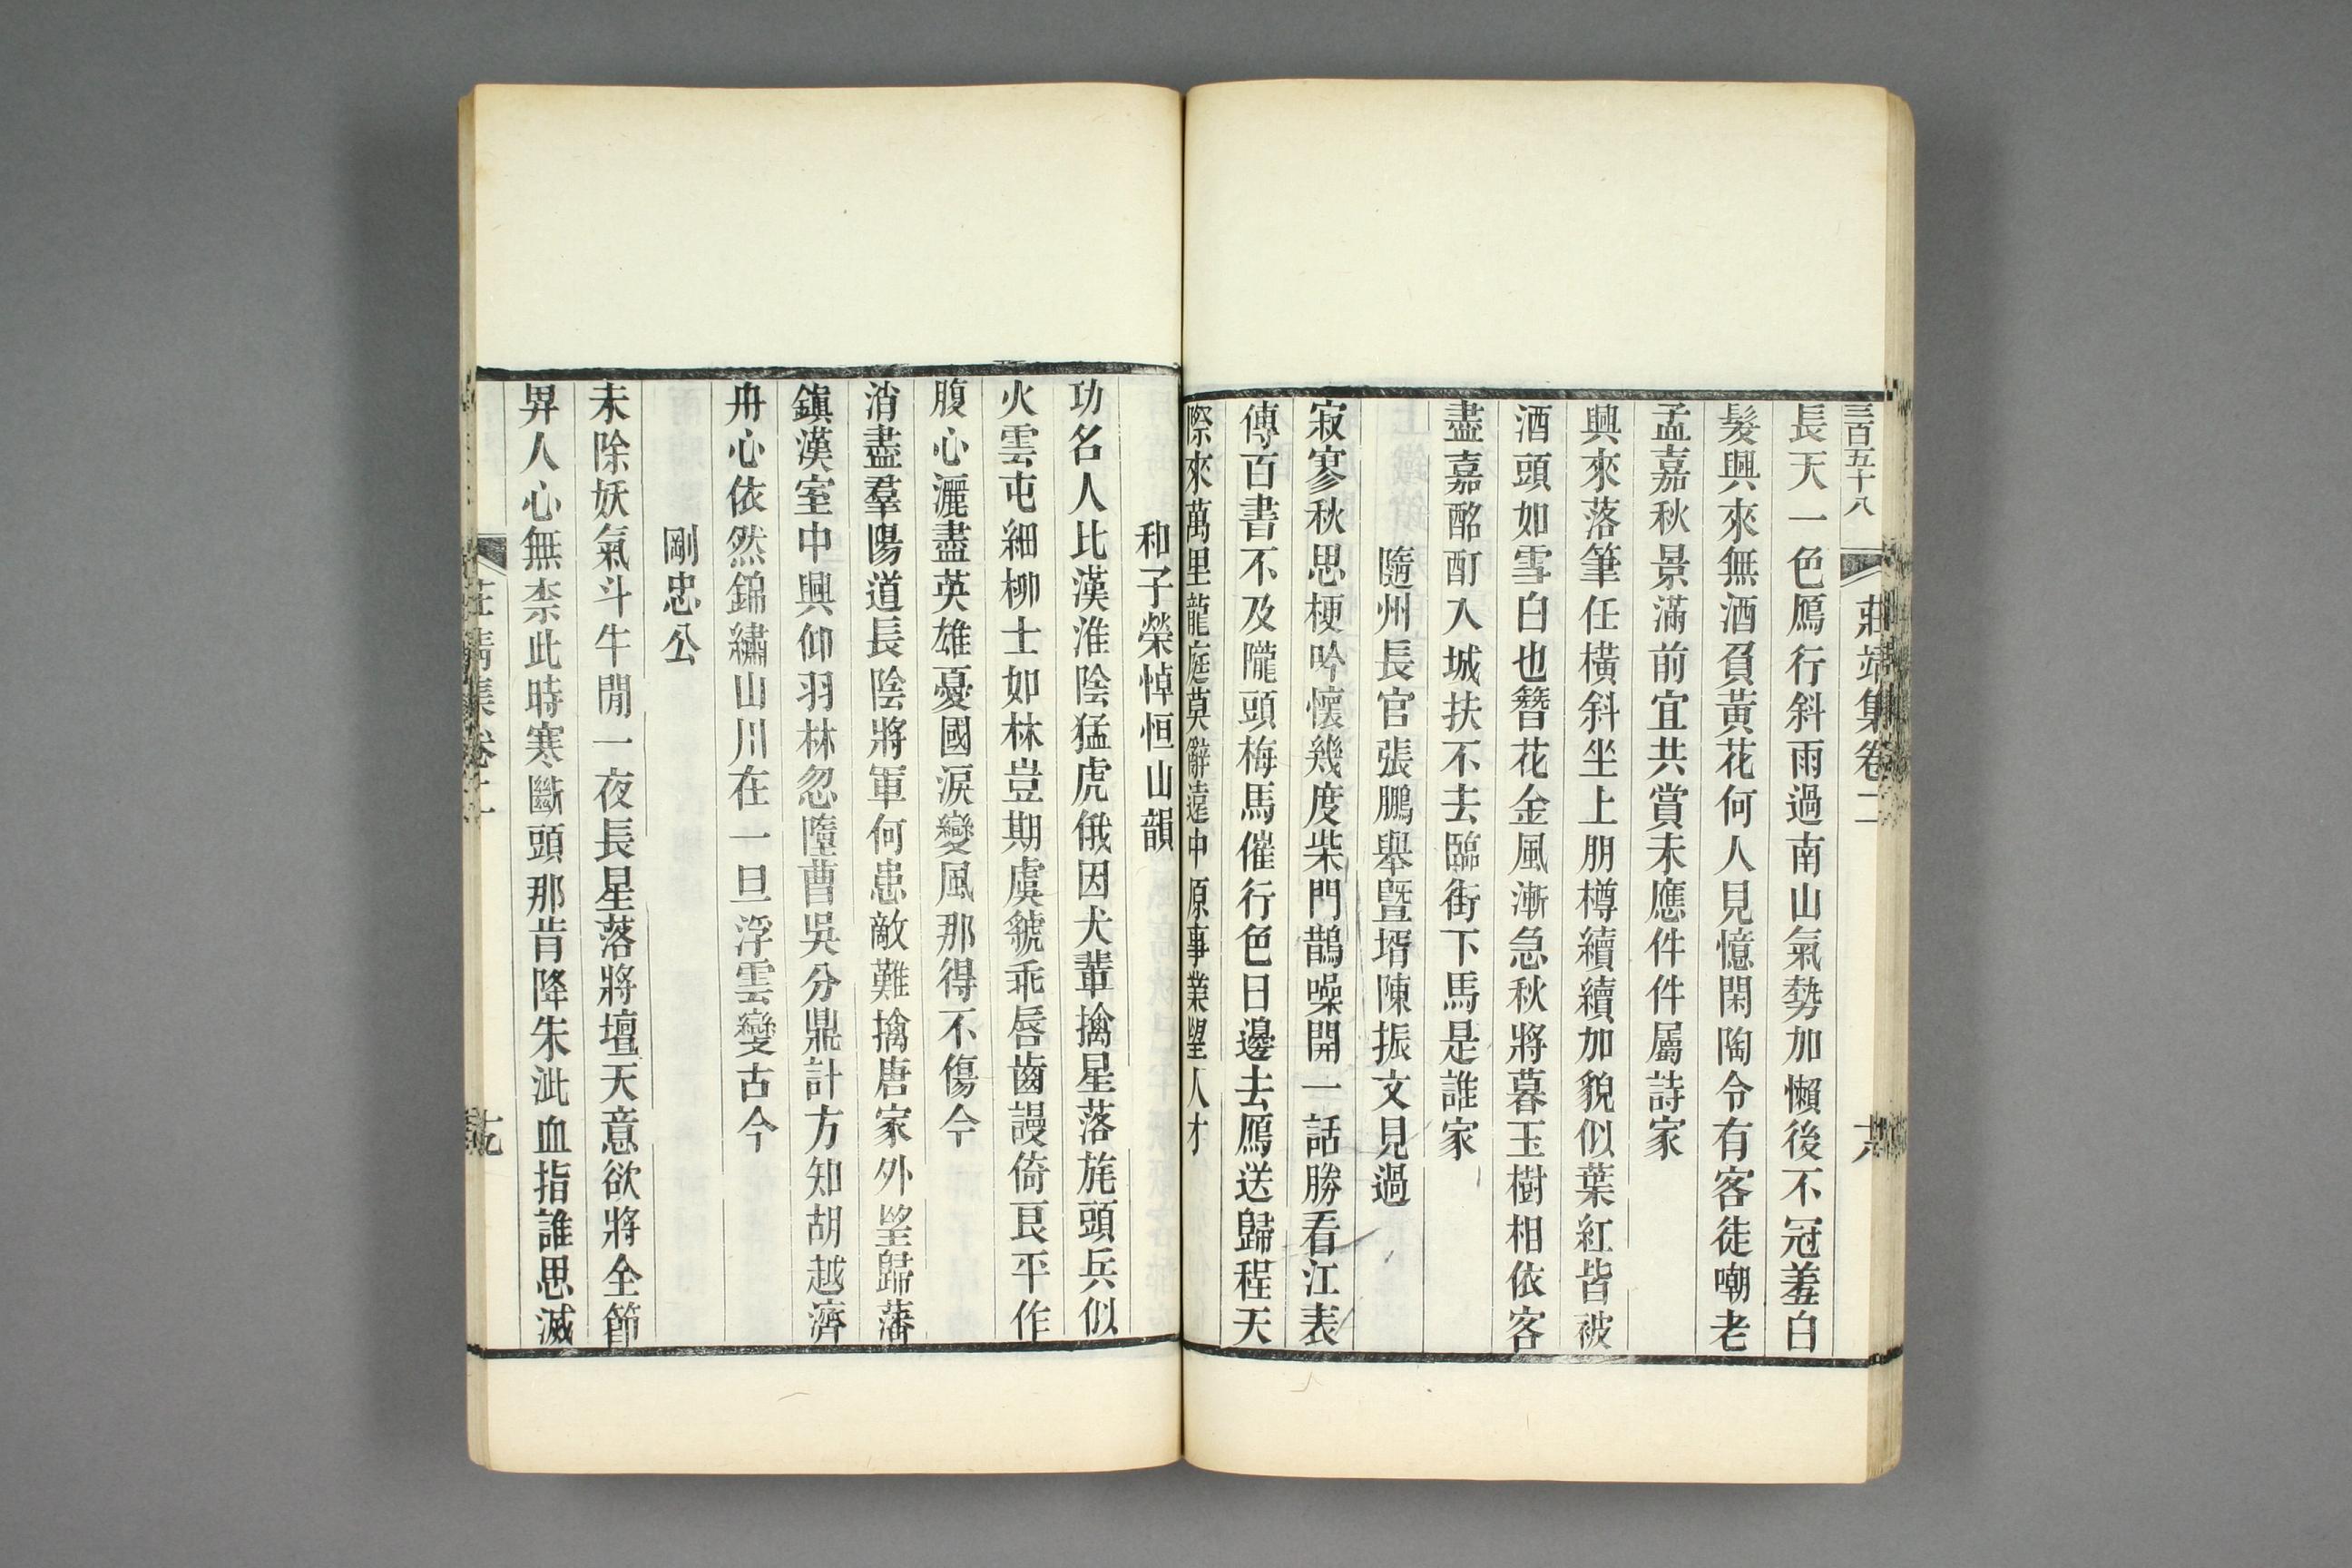 三百五十八
莊靖集卷二
十八
長天一色鴈行斜雨過南山氣勢加懶後不冠羞白
髮興來無酒負黃花何人見憶閑陶令有客徒嘲老
孟嘉秋景滿前宜共賞未應件件屬詩家
興來落筆任橫斜坐上朋樽續續加貌似葉紅皆被
酒頭如雪白也簪花金風漸急秋將暮玉樹相依客
盡嘉酩酊入城扶不去臨街下馬是誰家
隨州長官張鵬舉暨壻陳振文見過
寂寥秋思梗吟懷幾度柴門鵲噪開一話勝看江表
傳百書不及隴頭梅馬催行色日邊去鴈送歸程天
際來萬里龍庭莫辭遠中原事業望人才
和子榮悼恒山韻
功名人比漢淮陰猛虎俄因犬輩擒星落旄頭兵似
火雲屯細柳士如林豈期虞虢乖唇齒謾倚良平作
腹心灑盡英雄憂國淚變風那得不傷今
消盡羣陽道長陰將軍何患敵難擒唐家外望歸藩
鎮漢室中興仰羽林忽墮曹吳分鼎計方知胡越濟
舟心依然錦繡山川在一旦浮雲變古今
剛忠公
未除妖氣斗牛閒一夜長星落將壇天意欲將全節
畀人心無柰此時寒斷頭那肯降朱泚血指誰思滅
莊靖集卷二
十九